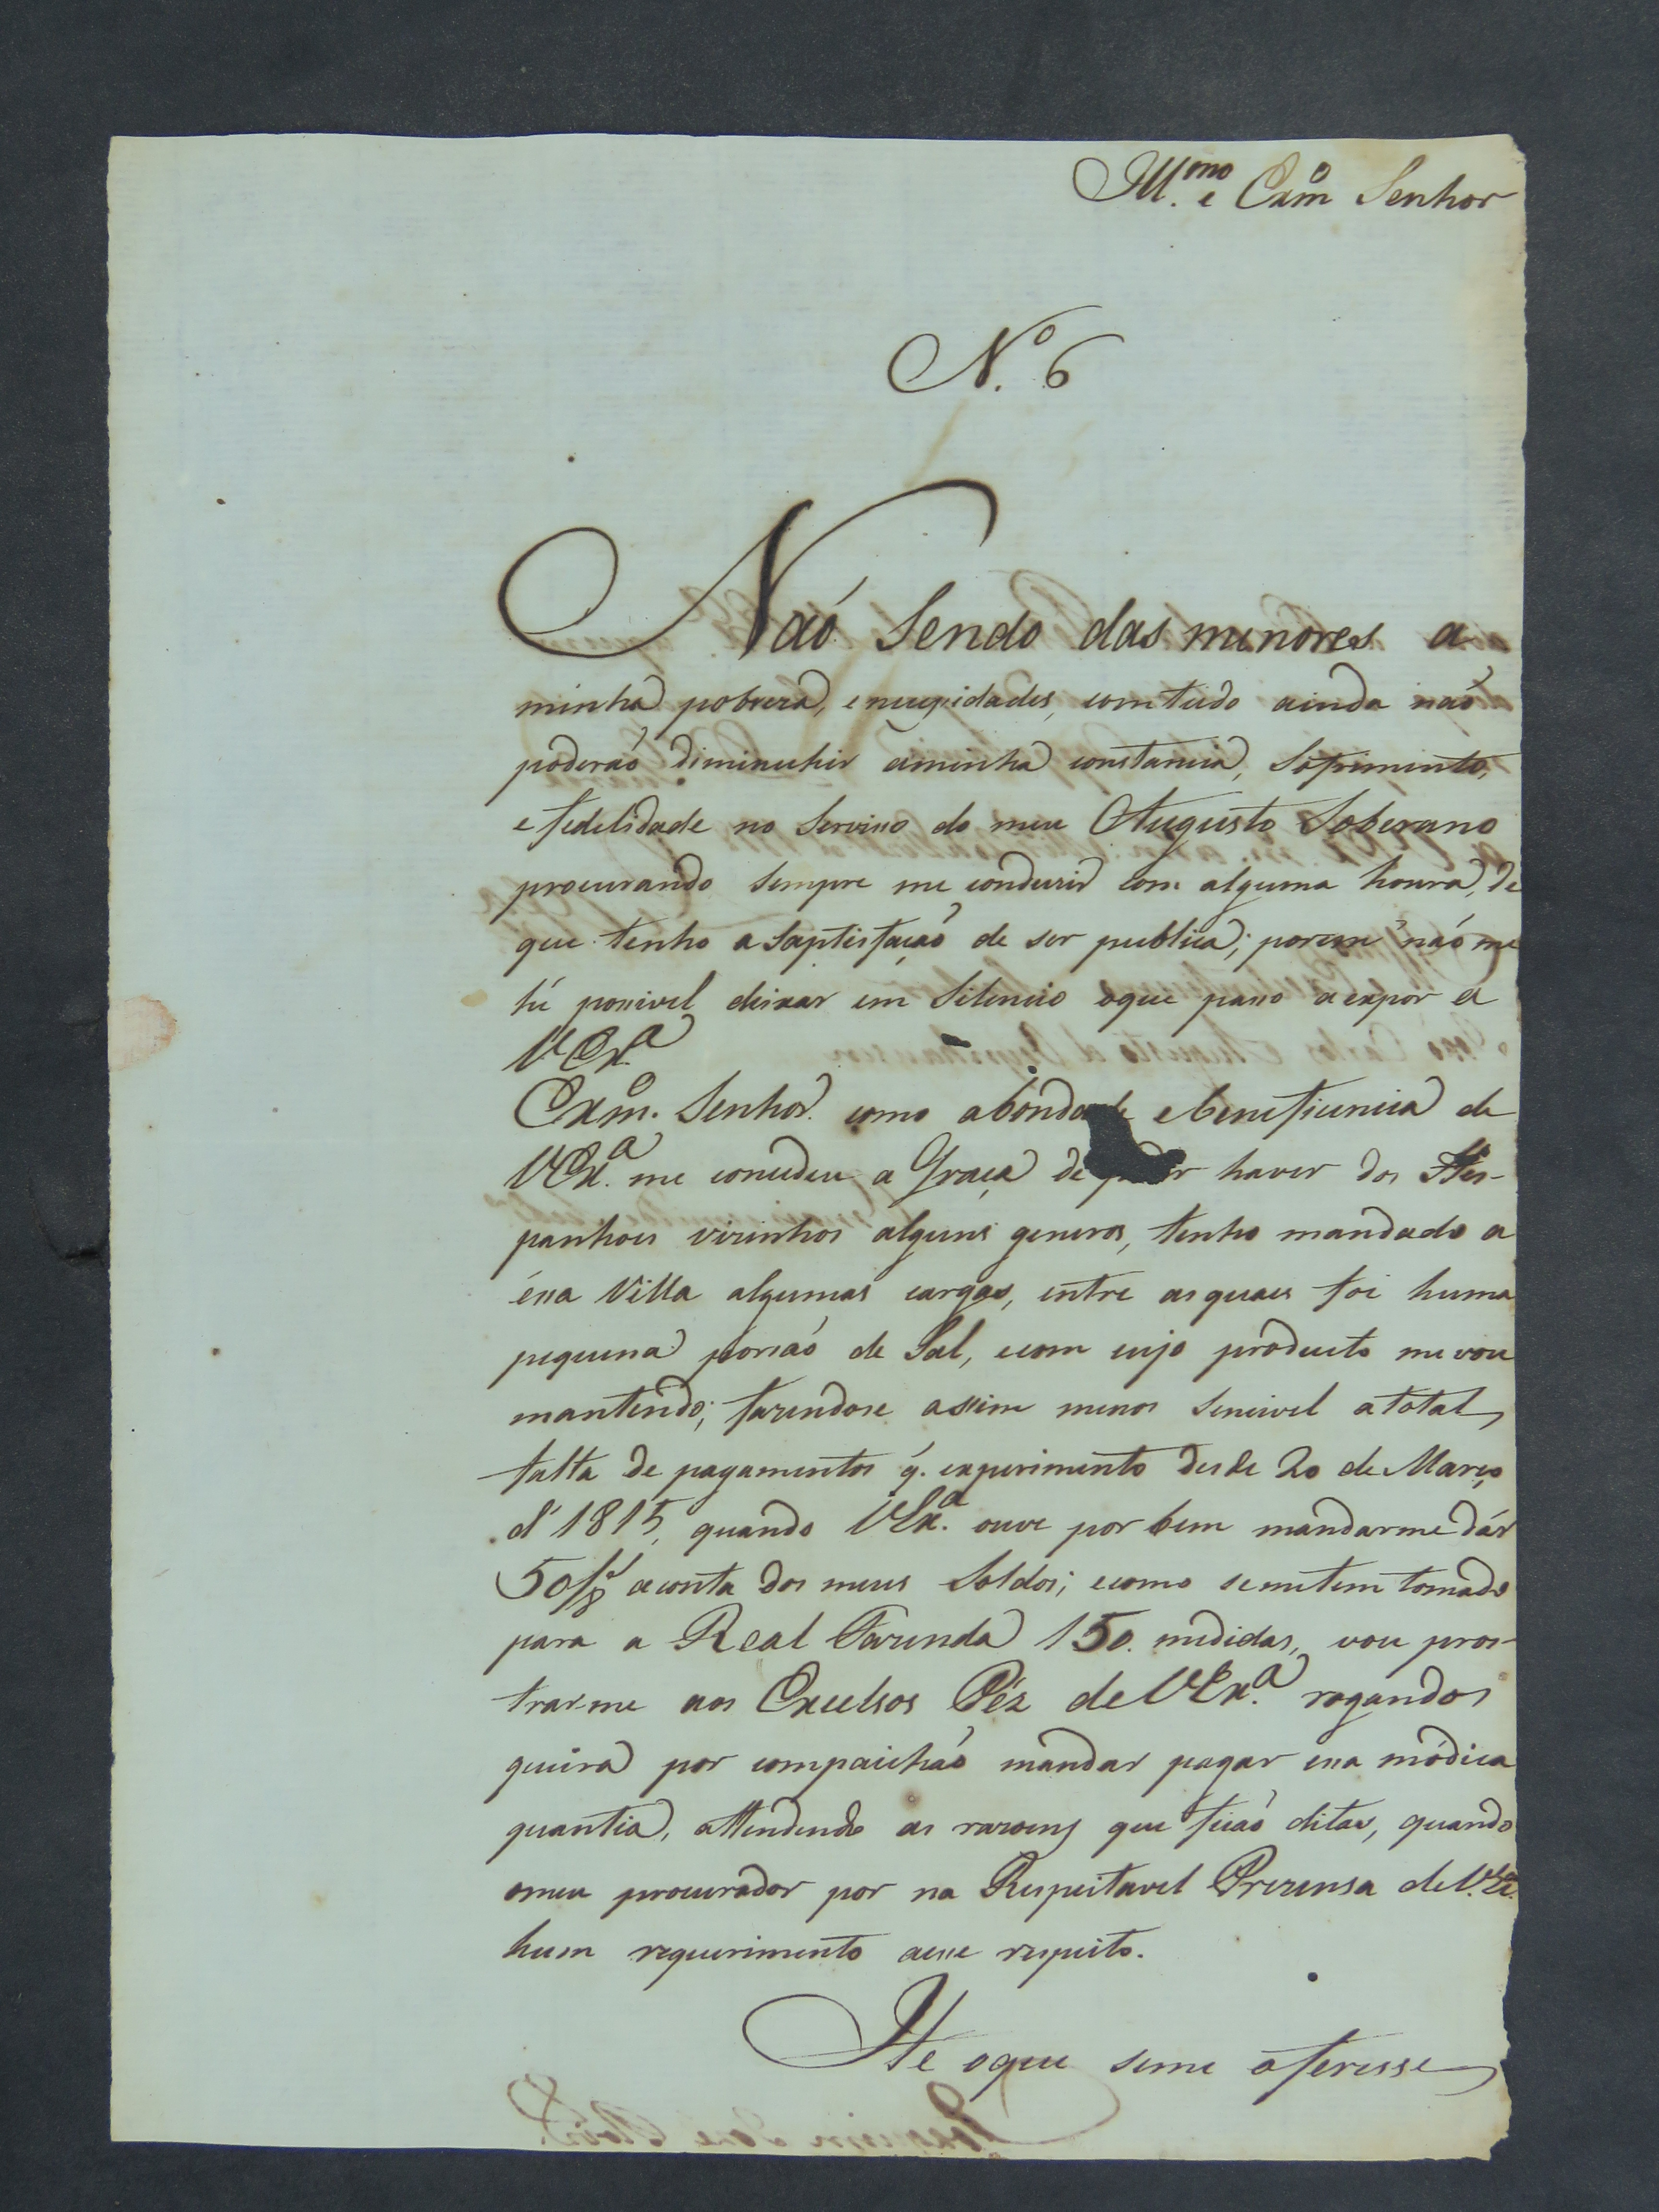 Ill.mo e Exmo Senhor
N.o 6
Naó Sendo das minores a
minha pobreza, e necessidades, com tudo ainda naó
poderaó diminuhir aminha constancia, Sofrimento,
e fedelidade no Servisso do meu Augusto Soberano
procurando sempre me conduzir com alguma honra, de
que tenho a Saptisfaçaó de ser publica; porem naó me
hé possivel deixar em Silencio oque passo a expor a
VEx.a
Exmo. Senhor. como abondade ebeneficencia de
VEx.a me concedeu a Graça de poder haver dos Hes-
panhois vizinhos alguns generos, tenho mandado a
éssa Villa algumas cargas, entre asquaes foi huma
pequena porsaó de Sal, ecom cujo producto me vou
mantendo; fazendose assim menos sencivel atotal
falta de pagamentos q. experimento desde 20 de Março
d'1815, quando VEx.a ouve por bem mandarme dár
50/8 aconta dos meus Soldos; ecomo semetem tomado
para a Real Fazenda 150. medidas, vou pros-
trarme aos Excelsos Péz de VEx.a rogando
queira por compaichaó mandar pagar essa módica
quantia, attendendo as razoens que ficaó ditas, quando
omeu procurador por na Respeitavel Prezensa de V.Ex.
hum requerimento aesse respeito.
Hé oque seme oferesse